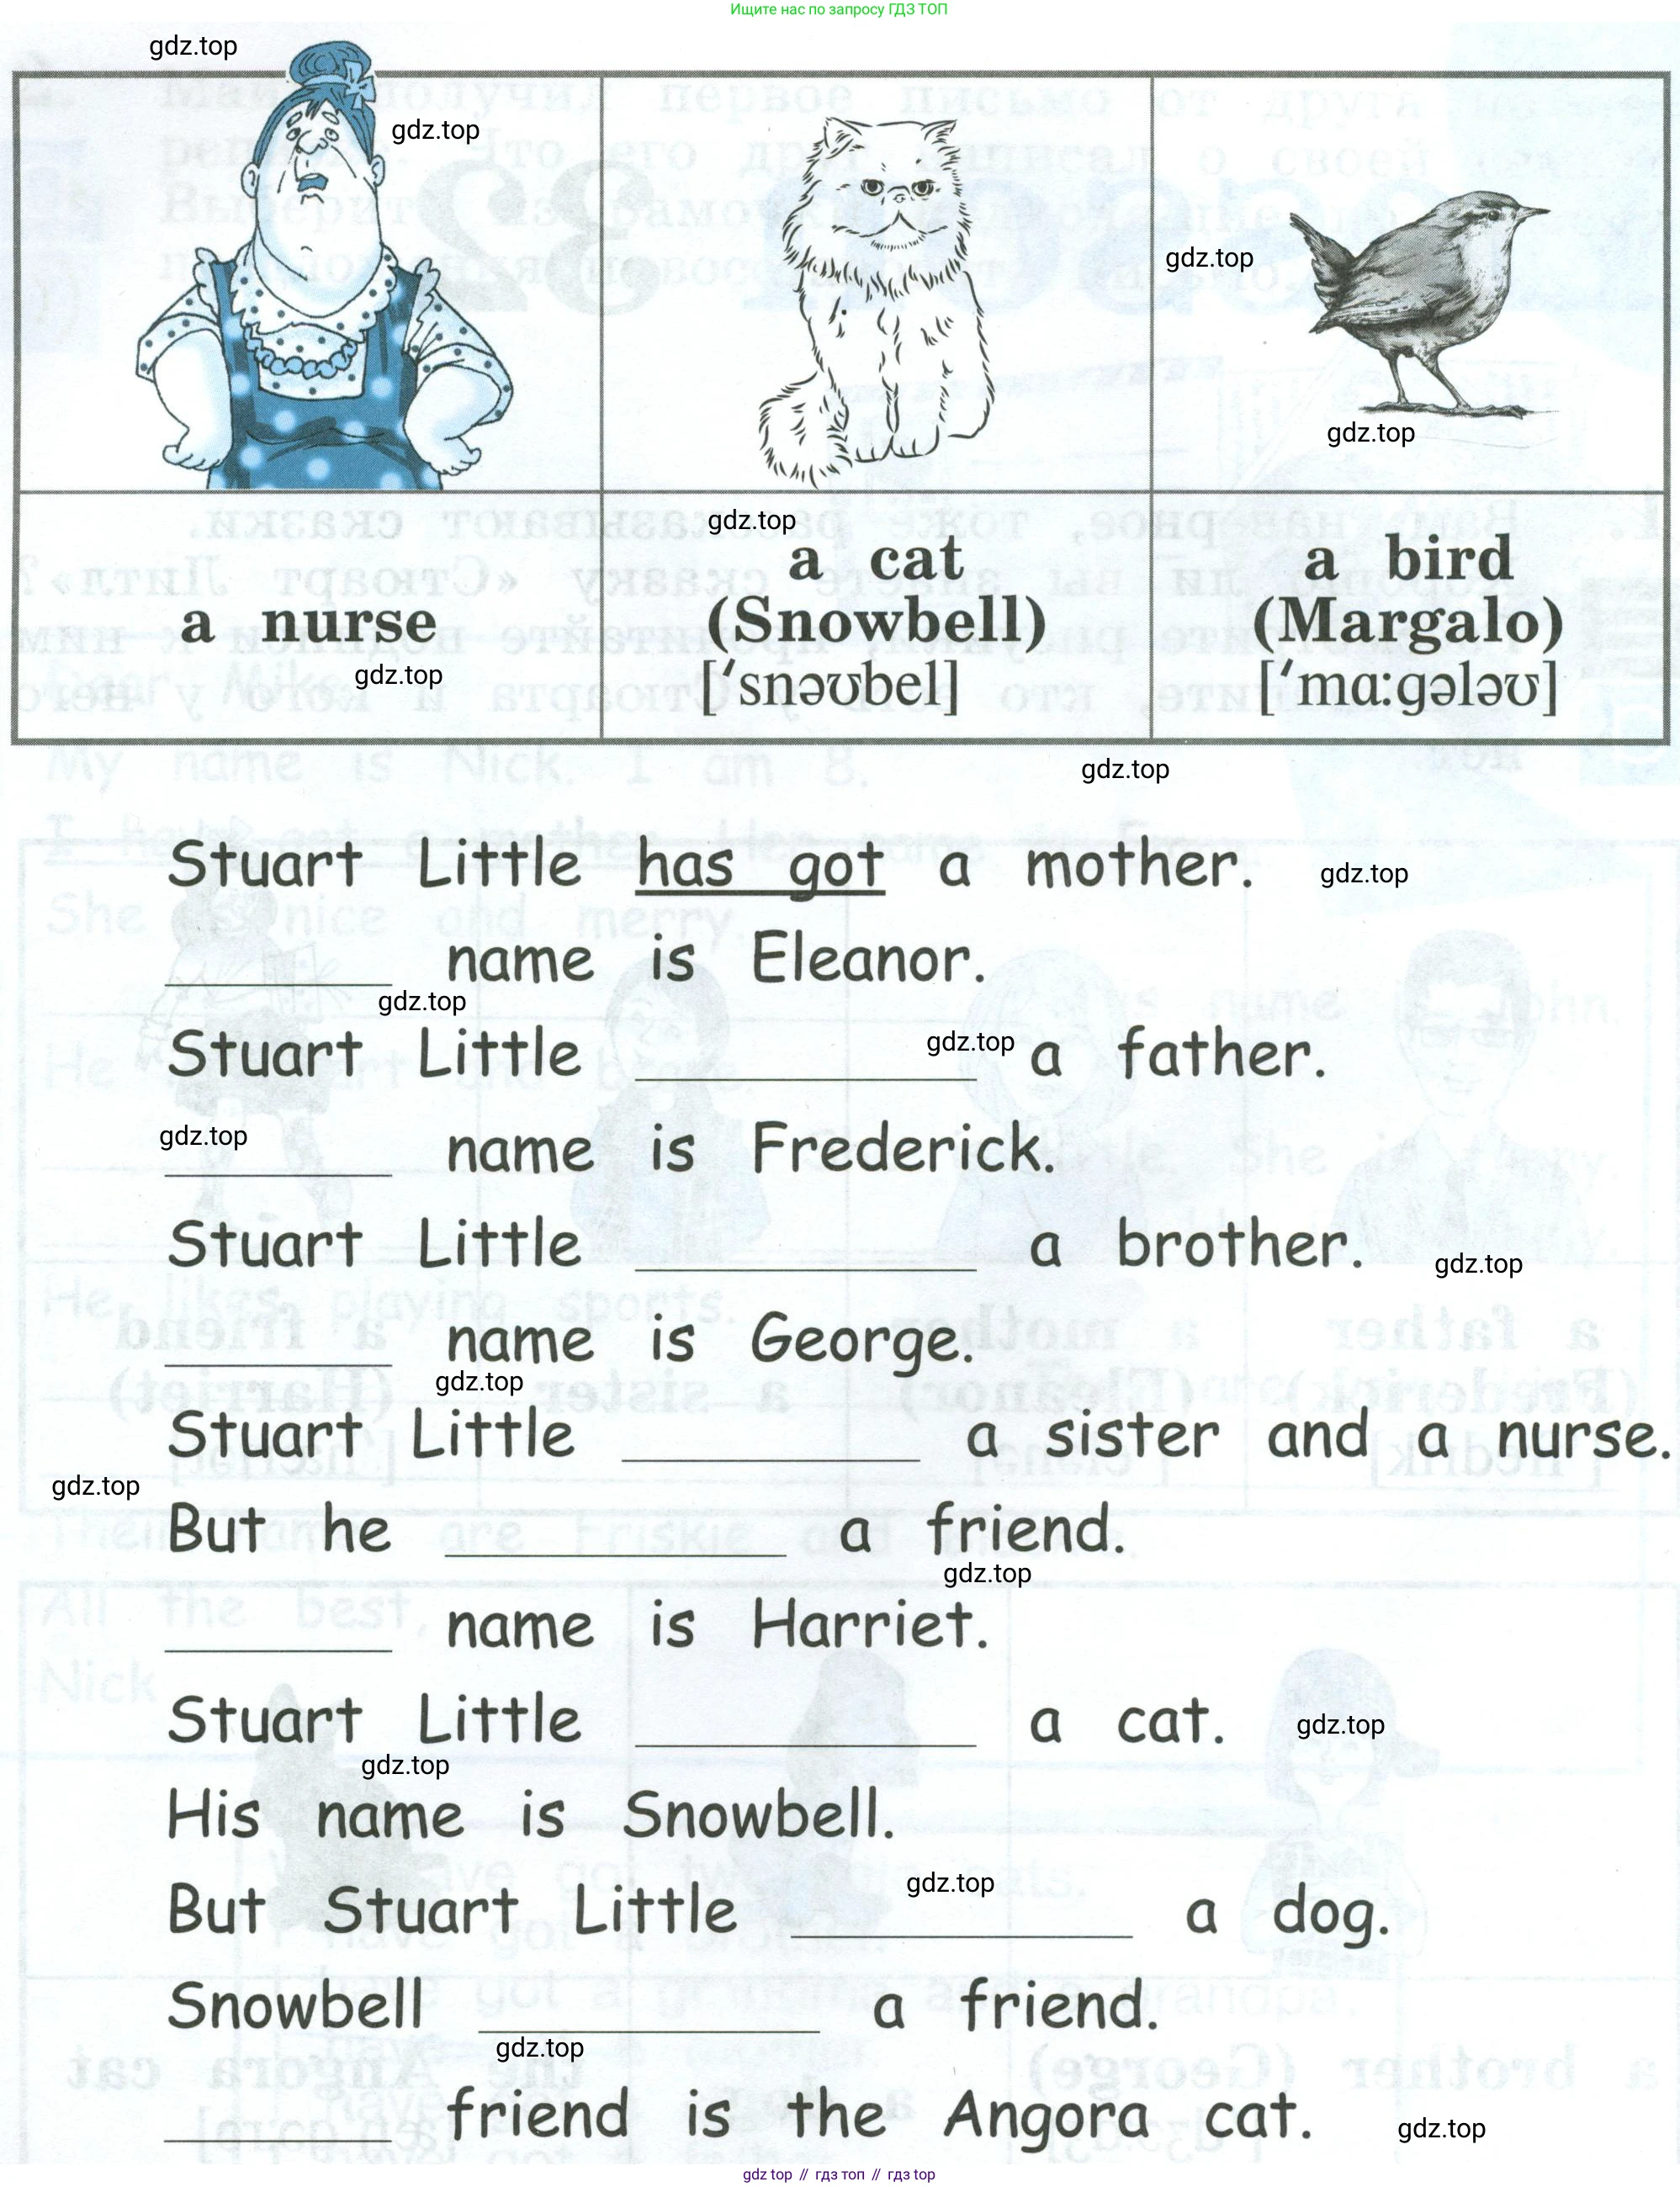 Ищите нас по запросу ГДЗ ТОП
gdz.top
gdz.top
gdz.top
gdz.top
gdz.top
a nurse
a cat
(Snowbell)
[ˈsnəʊbel]
a bird
(Margalo)
[ˈmɑːgələʊ]
gdz.top
gdz.top
Stuart Little has got a mother.
gdz.top
____ name is Eleanor.
gdz.top
Stuart Little ____ a father.
gdz.top
____ name is Frederick.
gdz.top
Stuart Little ____ a brother.
gdz.top
____ name is George.
gdz.top
Stuart Little ____ a sister and a nurse.
gdz.top
But he ____ a friend.
gdz.top
____ name is Harriet.
Stuart Little ____ a cat.
gdz.top
gdz.top
His name is Snowbell.
But Stuart Little ____ a dog.
gdz.top
Snowbell ____ a friend.
gdz.top
____ friend is the Angora cat.
gdz.top
gdz top // гдз топ // гдз top